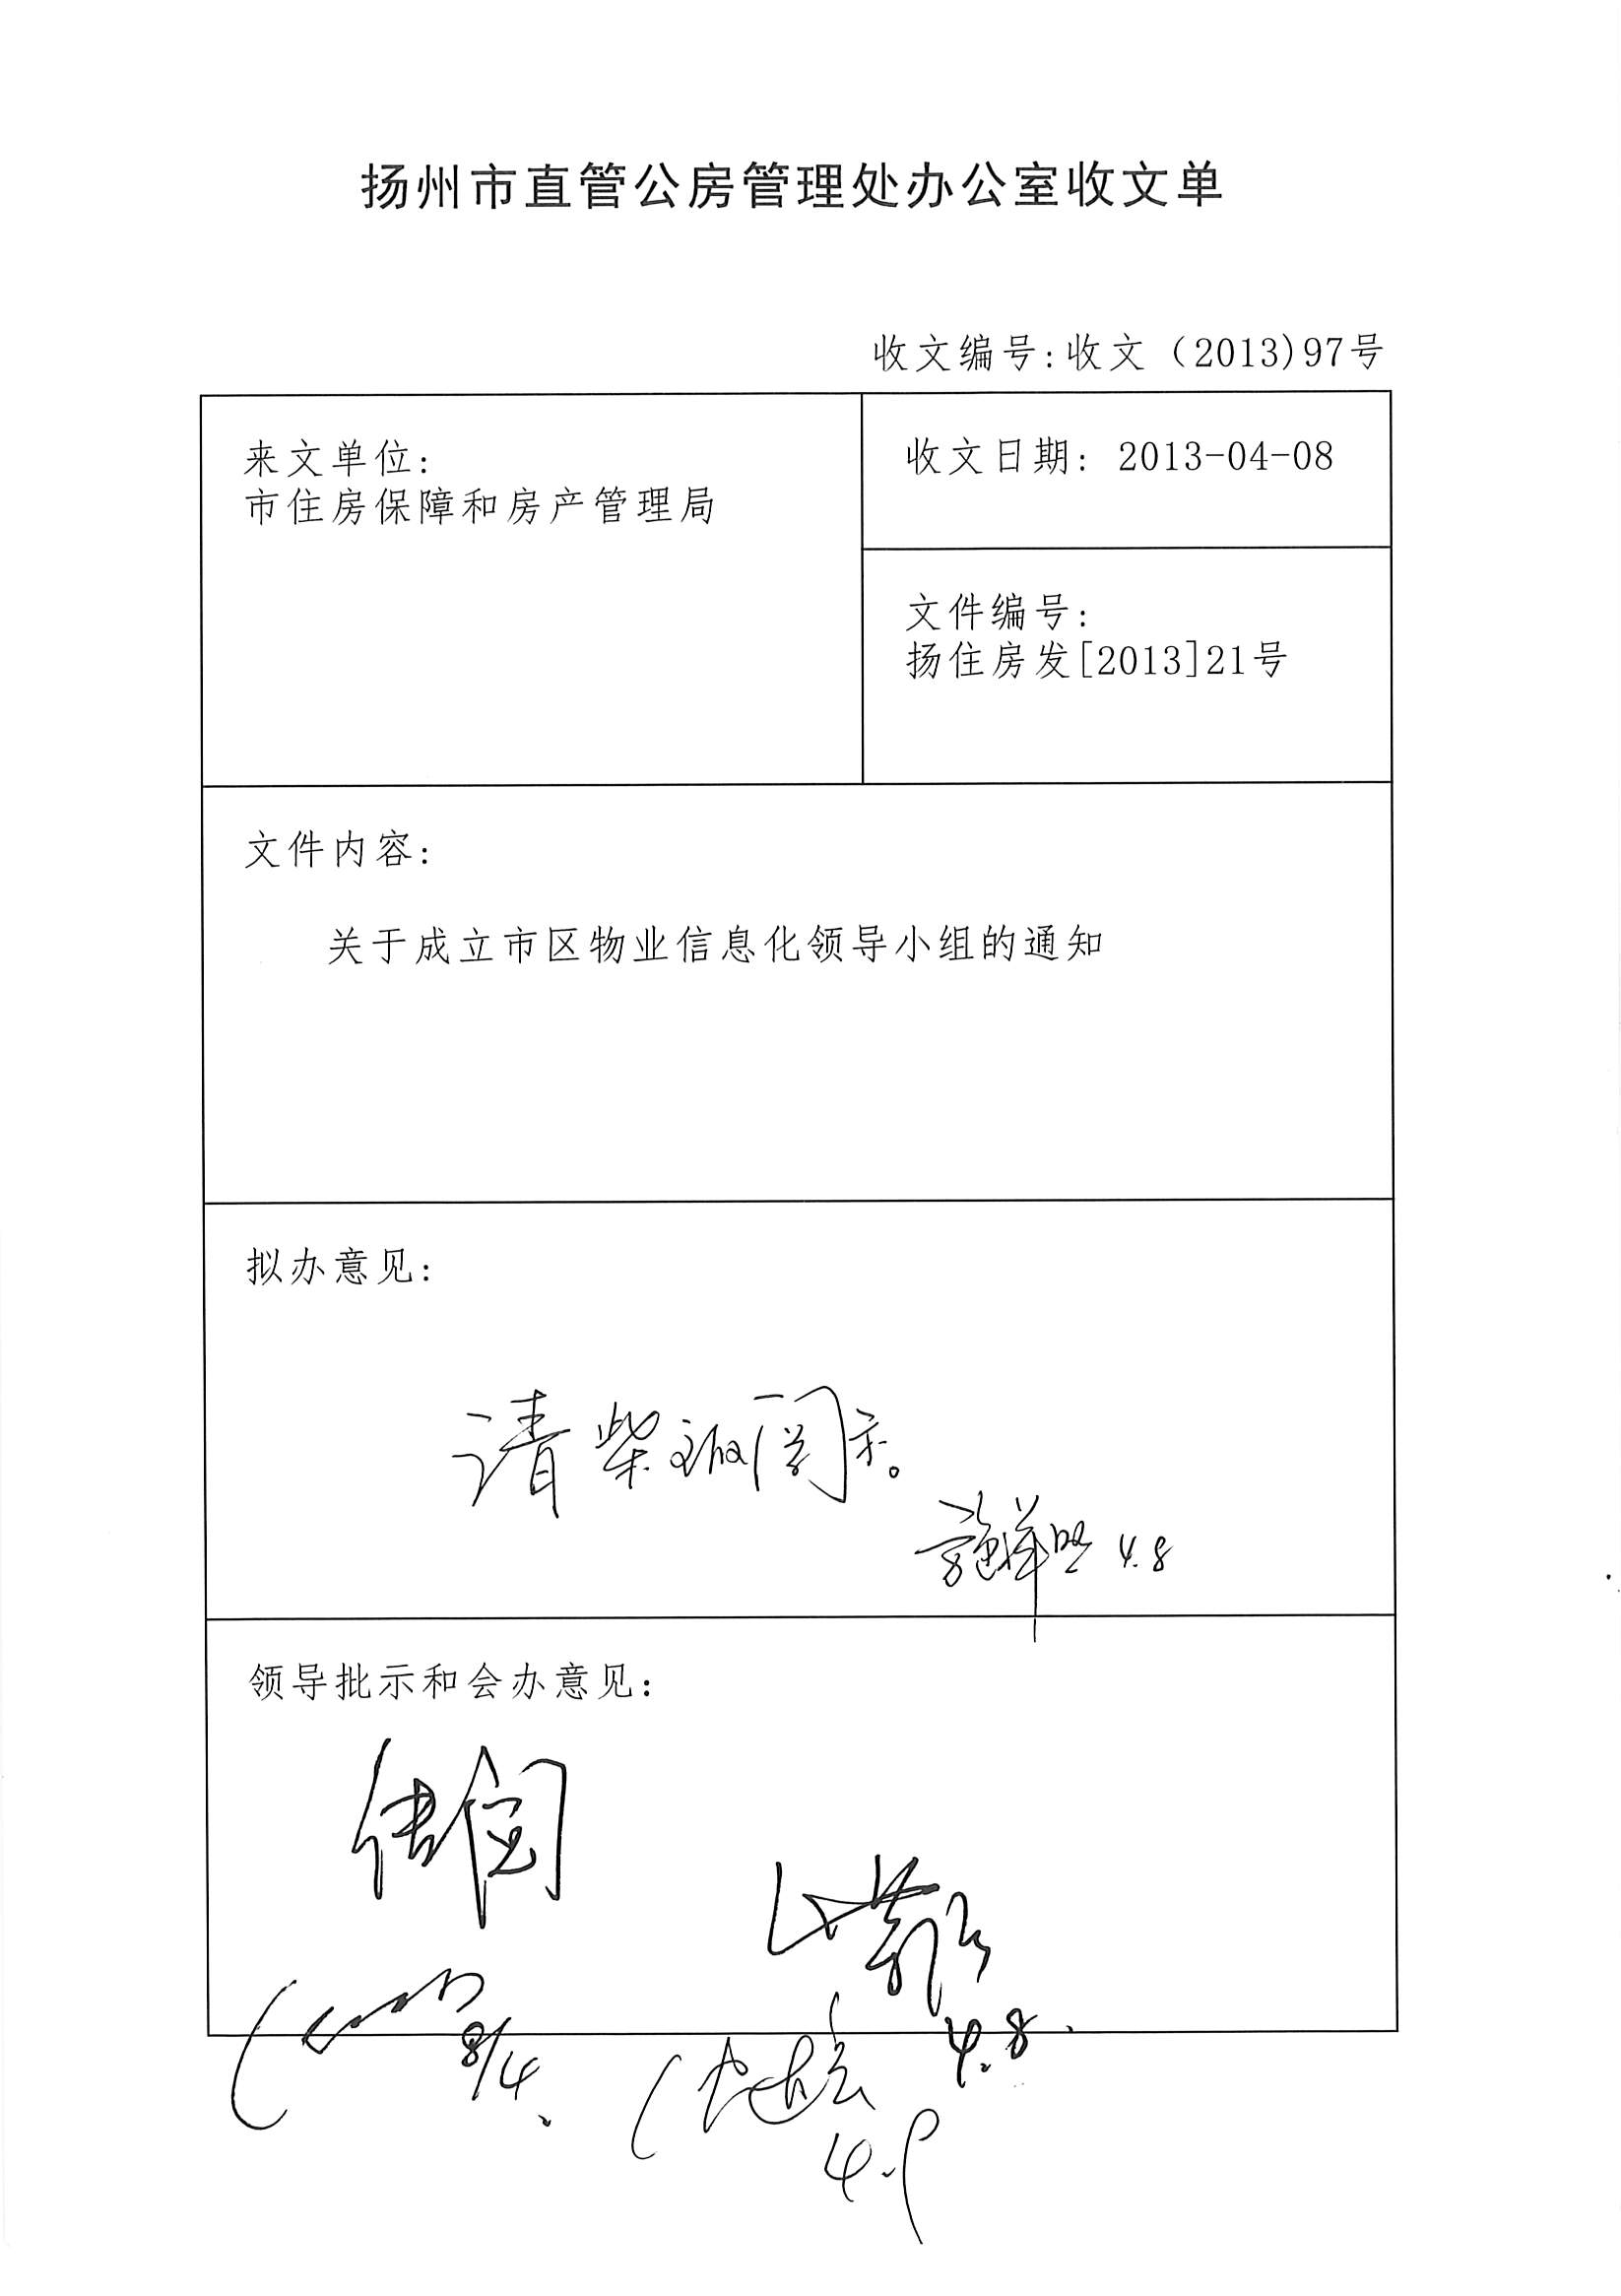 扬州市直管公房管理处办公室收文单
收文编号:收文（2013)97号
来文单位:
市住房保障和房产管理局
收文日期: 2013-04-08
文件编号:
扬住房发[2013]21号
文件内容:
关于成立市区物业信息化领导小组的通知
拟办意见:
请柴阅示。
4.8
领导批示和会办意见:
传阅
4.8.
8/4.